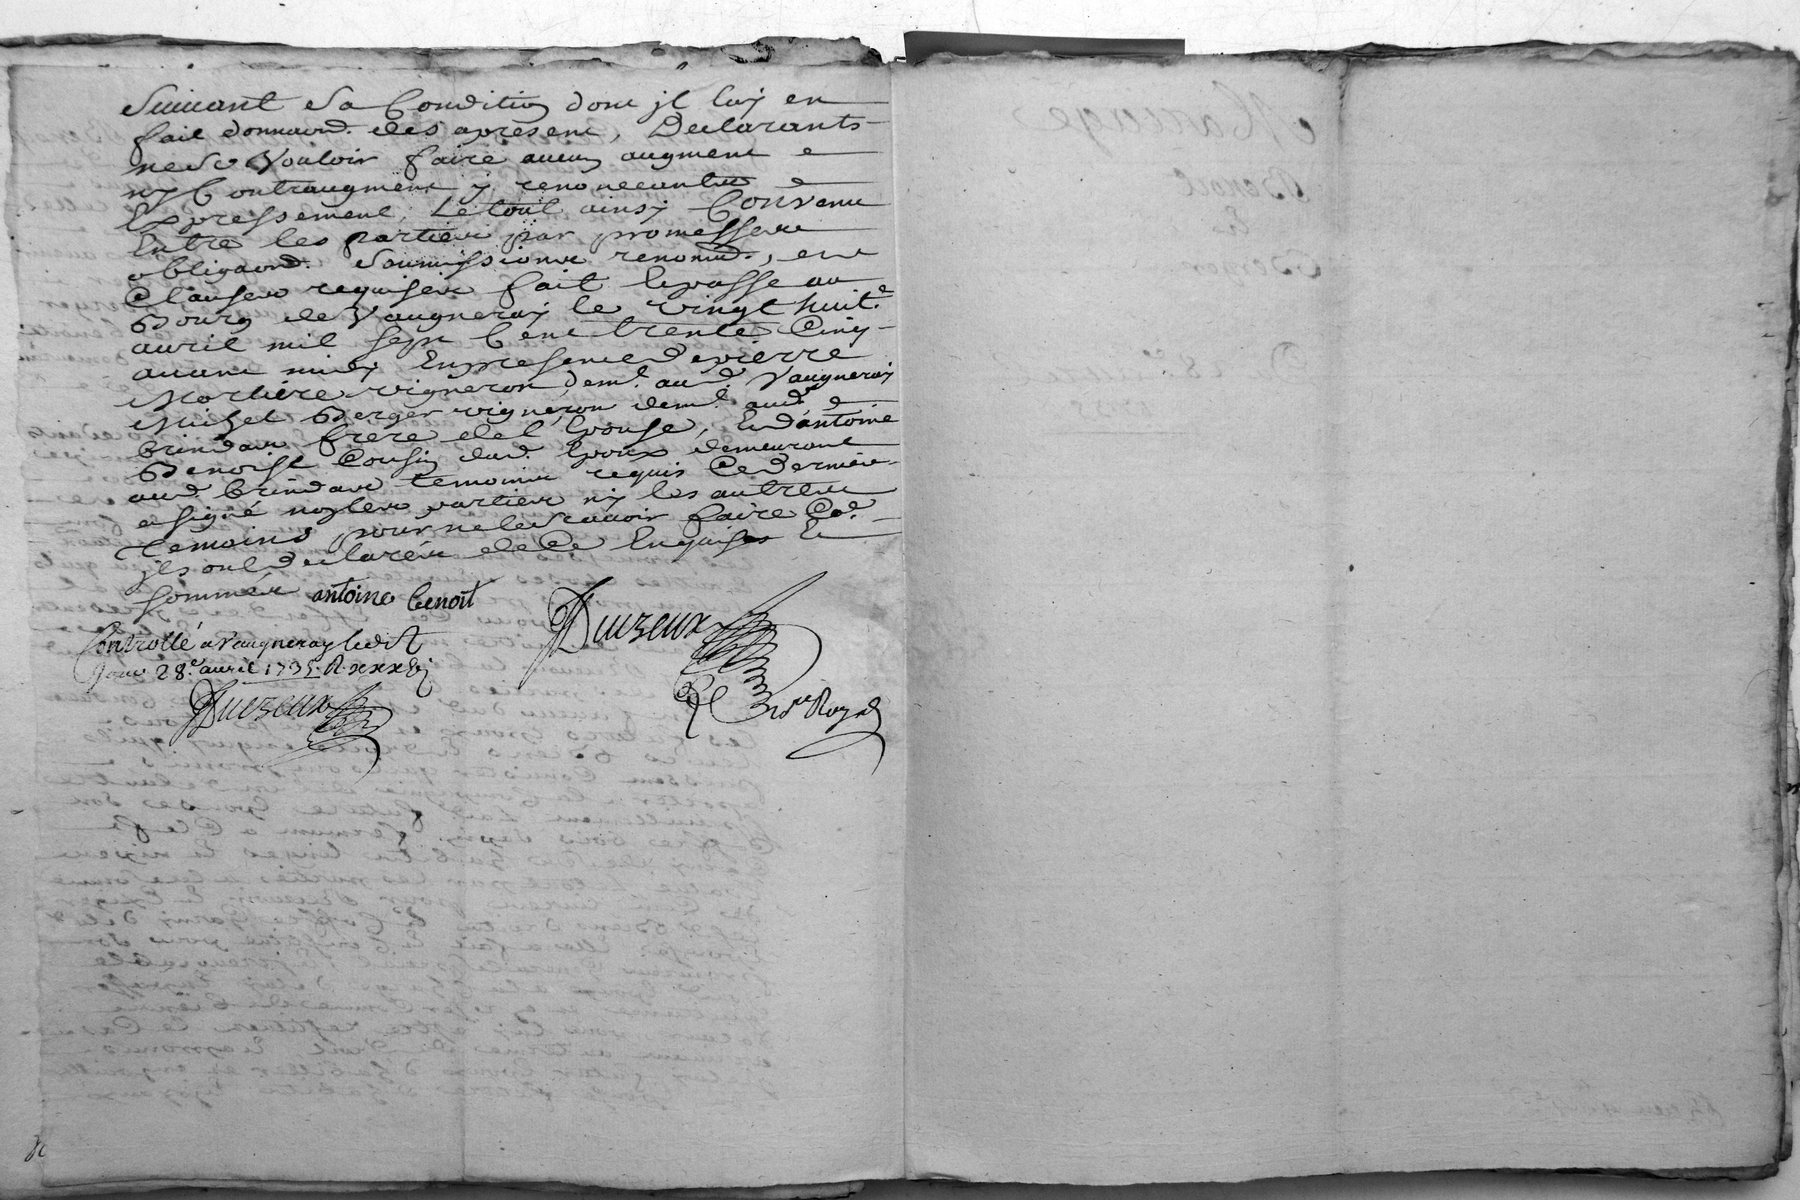 Suivant Sa Condition dont jl luy en
fait donnaõn. des apresent, Declarants
ne Se Vouloir faire aucun augment
ny Contraugment y renonceantes
Expressement, Le tout ainsy Convenu
Entre les parties par promesses
obligaõns. Soumissions renonñs., et
Clauses requises fait & passé au
Bourg de Vaugneray le vingt huit.e
avril mil Sept Cent trente Cinq
avant midy En presence de pierre
vigneron dem.t aud. Vaugneray
Michel Berger vigneron dem.t aud.
brindas frere de l'Epouse, Et d'antoine
Benoist Cousin dud. Epoux demeurant
aud. brindas temoins requis Ce dernier
a signé non les parties ny les autres
temoins pour ne le Scavoir faire
jls ont declaré de Ce Enquises Et
Sommés antoine benoit
Controllé a Vaugneray ledit
jour 28.e avril 1735. R.
No.re Royal
Mariage
Benoit
&
Berger